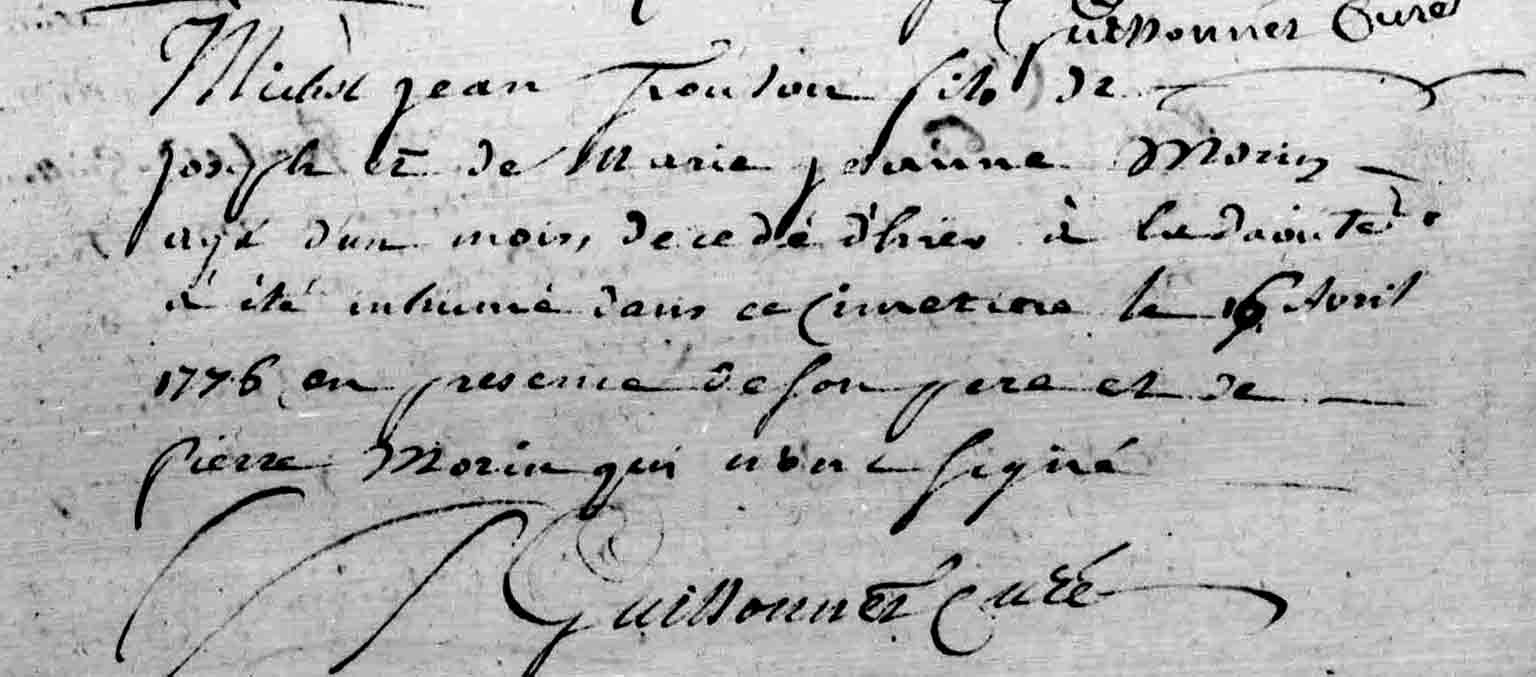 Guissonnet Curé
Michel jean Froulon fils de
joseph et de Marie jeanne Morin
agé d'un mois, decedé d'hier à la
a été inhumé dans ce Cimetiere le 16 Avril
1776 en presence de son pere et de
pierre Morin qui n'ont signé
Guissonnet Curé